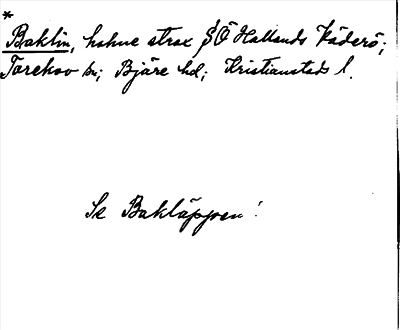 *
Baklin, holme strax SÖ Hallands Väderö;
Torekov sn; Bjäre hd; Kristianstads l.
Se Bakläppen!